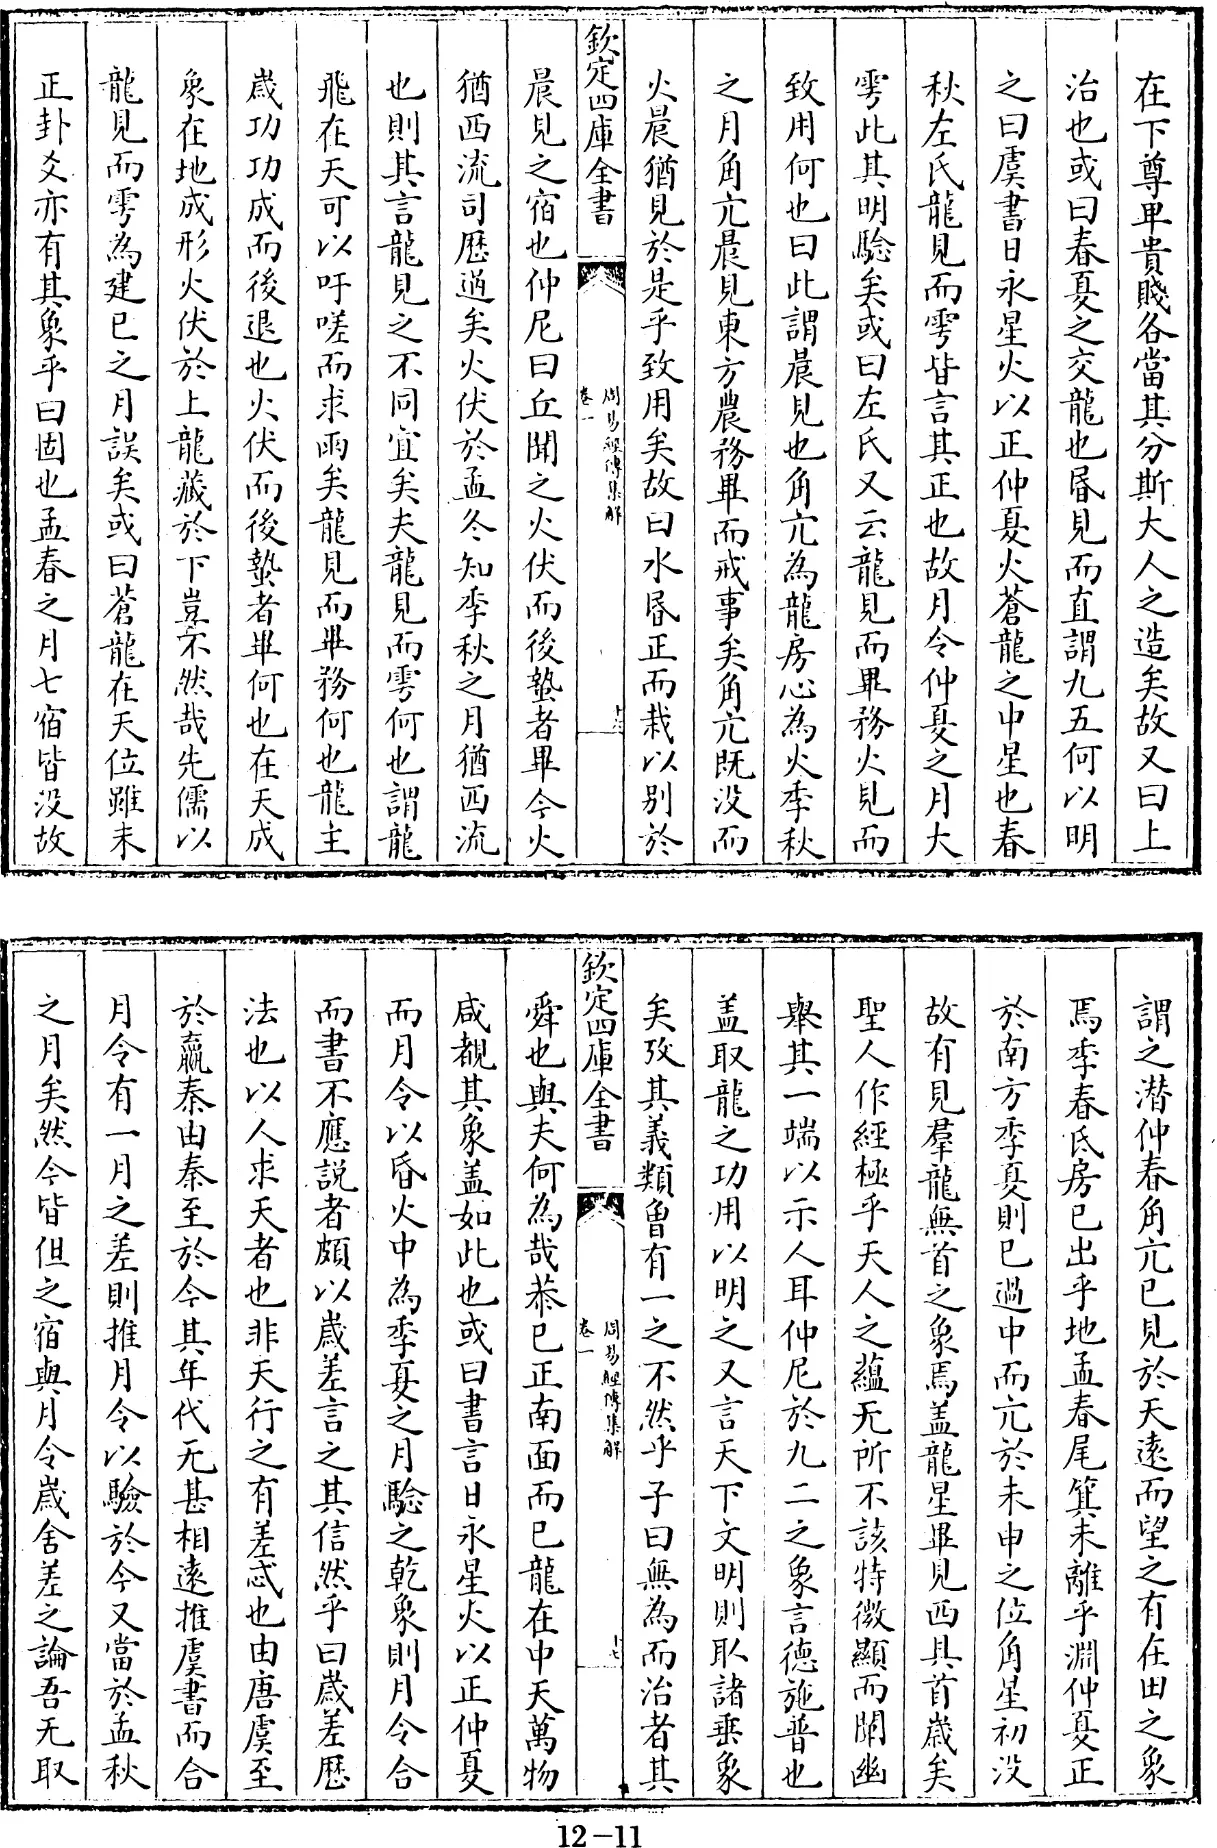 在下尊卑貴賤各當其分斯大人之造矣故又曰上
治也或曰春夏之交龍也昏見而直謂九五何以明
之曰虞書日永星火以正仲夏火蒼龍之中星也春
秋左氏龍見而雩皆言其正也故月令仲夏之月大
雩此其明驗矣或曰左氏又云龍見而畢務火見而
致用何也曰此謂晨見也角亢為龍房心為火季秋
之月角亢晨見東方農務畢而戒事矣角亢既没而
火晨猶見於是乎致用矣故曰水昏正而栽以别於
欽定四庫全書
周易經傳集解
卷一
十六
晨見之宿也仲尼曰丘聞之火伏而後蟄者畢今火
猶西流司歷過矣火伏於孟冬知季秋之月猶西流
也則其言龍見之不同宜矣夫龍見而雩何也謂龍
飛在天可以吁嗟而求雨矣龍見而畢務何也龍主
歲功功成而後退也火伏而後蟄者畢何也在天成
象在地成形火伏於上龍藏於下豈不然哉先儒以
龍見而雩為建巳之月誤矣或曰蒼龍在天位雖未
正卦爻亦有其象乎曰固也孟春之月七宿皆没故
謂之潜仲春角亢已見於天遠而望之有在田之象
焉季春氐房已出乎地孟春尾箕未離乎淵仲夏正
於南方季夏則已過中而亢於未申之位角星初没
故有見羣龍無首之象焉盖龍星畢見西具首歲矣
聖人作經極乎天人之藴无所不該特微顯而闡幽
舉其一端以示人耳仲尼於九二之象言德施普也
盖取龍之功用以明之又言天下文明則取諸垂象
矣攷其義類曾有一之不然乎子曰無為而治者其
欽定四庫全書
周易經傳集解
卷一
十七
舜也與夫何為哉恭已正南面而已龍在中天萬物
咸覩其象盖如此也或曰書言日永星火以正仲夏
而月令以昏火中為季夏之月驗之乾象則月令合
而書不應説者頗以歲差言之其信然乎曰歲差歷
法也以人求天者也非天行之有差忒也由唐虞至
於嬴秦由秦至於今其年代无甚相遠推虞書而合
月令有一月之差則推月令以驗於今又當於孟秋
之月矣然今皆但之宿與月令歲舍差之論吾无取
12-11